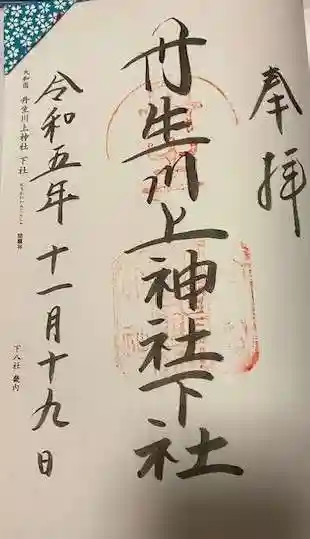 奉拝
丹生川上神社下社
令和五年十一月十九日
大和國 丹生川上神社 下社
下八社 畿内